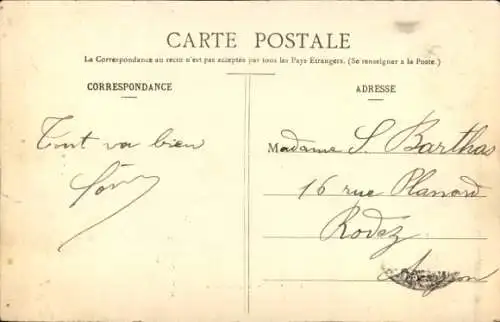 CARTE POSTALE
La Correspondance au recto n'est pas acceptée par tous les Pays Etrangers. (Se renseigner a la Poste.)
CORRESPONDANCE
ADRESSE
Tout va bien
Madame S. Barthas
16 rue Planard
Rodez
Aveyron